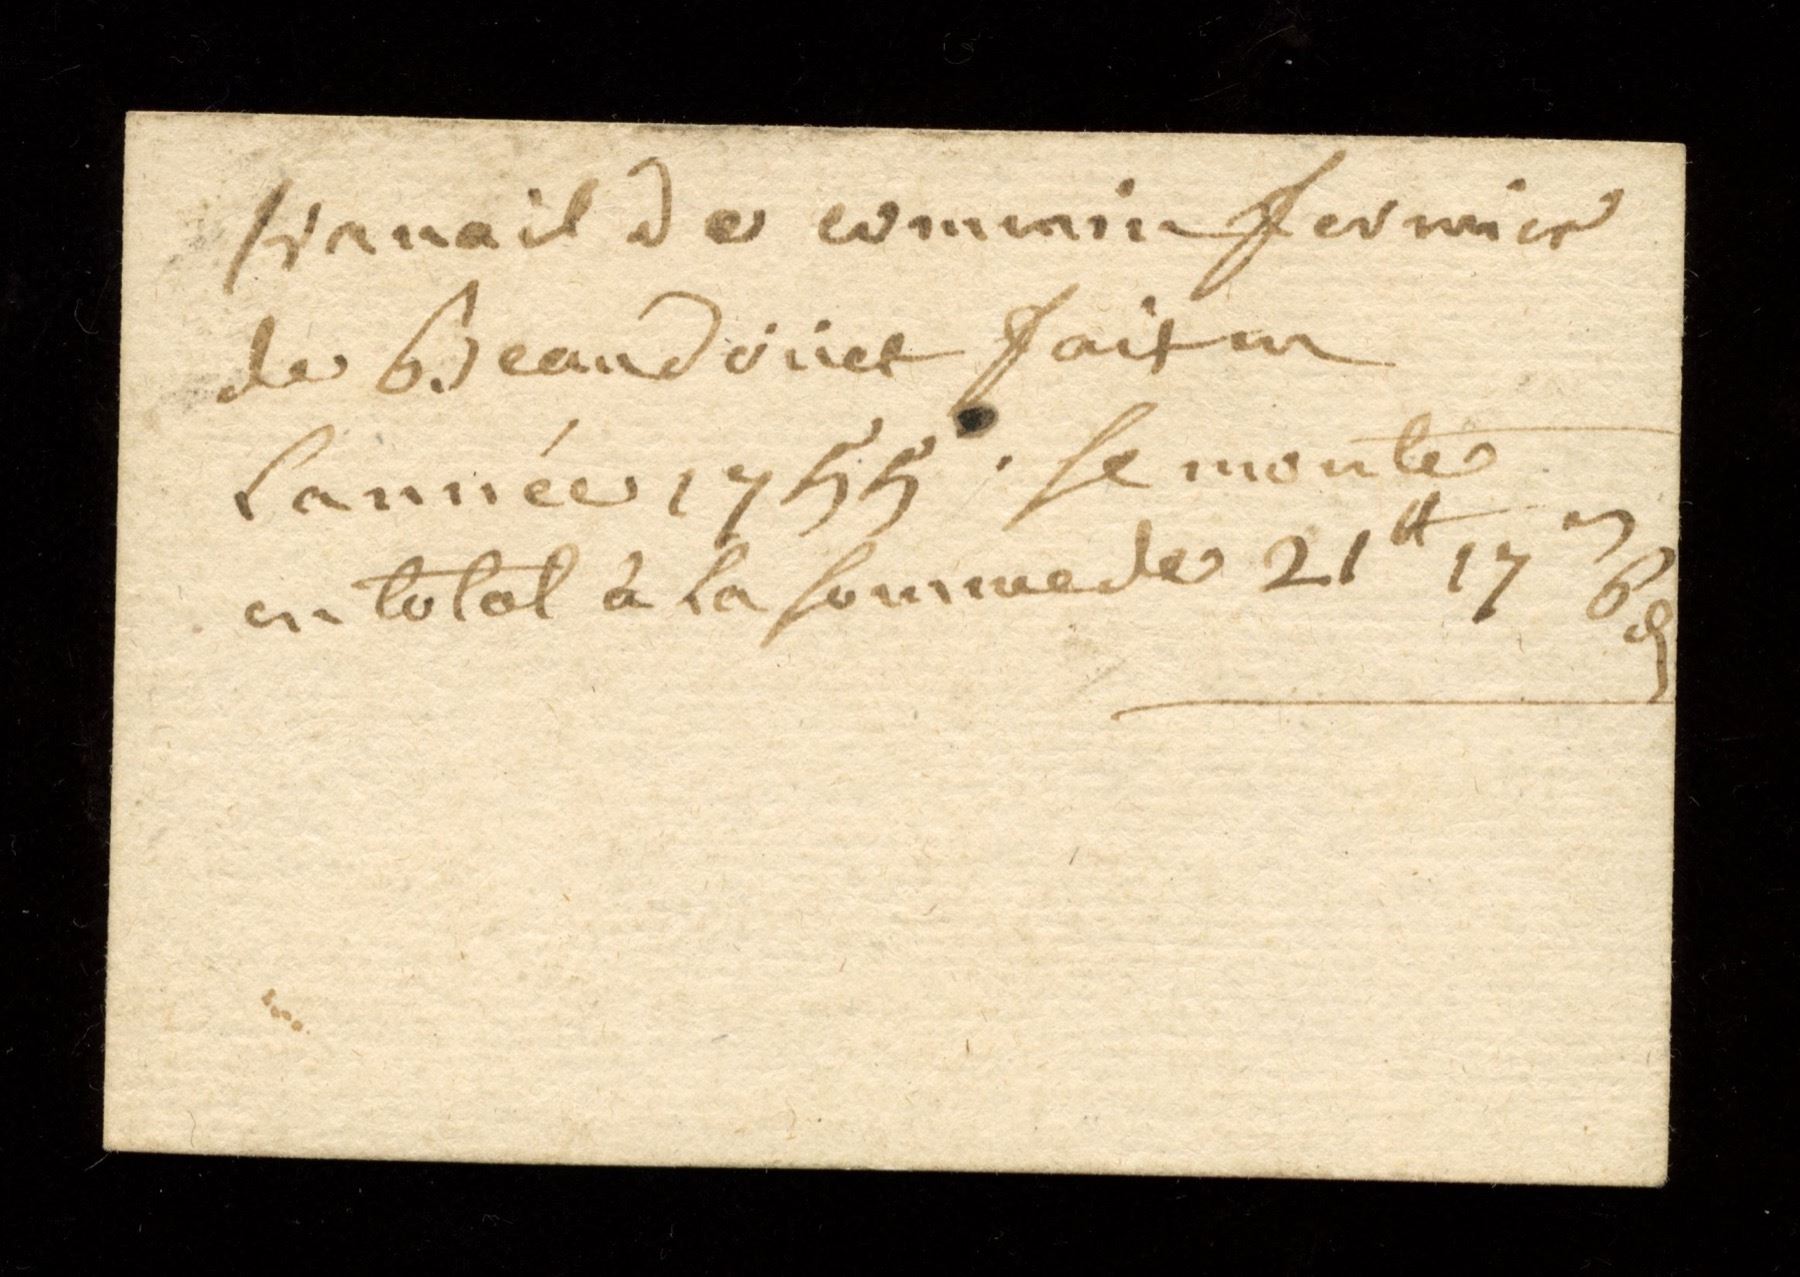 travail de commin fermier
de Beaudoüet fait en
L'année 1755. Se monte
en total à la Somme de 21tt 17 s 6 d